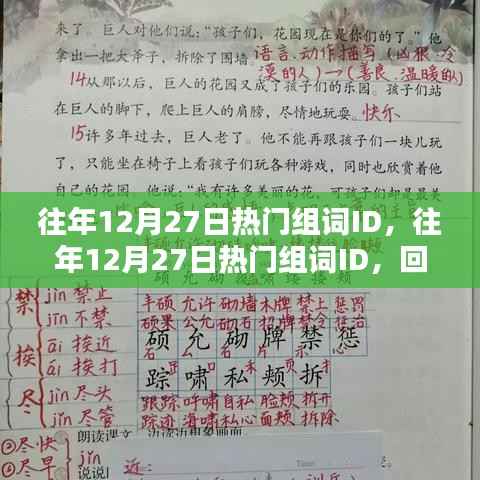 来了。巨人对他们说:“孩子们,花园现在是你们的了。”他
拿出一把大斧子,拆除了围墙。语言、动作描写(凶狠、冷
漠的人)→(善良、温暖的人)
14从那以后,巨人的花园又成了孩子们的乐园。孩子们站
在巨人的脚下,爬上巨人的肩膀,尽情地玩耍。快乐
15许多年过去,巨人老了。他不能再跟孩子们一块儿玩
了,只能坐在椅子上看孩子们玩各种游戏,同时也欣赏着他
自己的花园。他说:“我有许多美丽的花,可孩子们却是最美
往年12月27日热门组词ID,往
年12月27日热门组词ID,回
禁 jīn 不禁
jìn 禁止
挨 āi 挨近
ái 挨打
尽 jìn 尽头
jǐn 尽管
②尽快
③尽早
丰硕 允许 砌墙 木牌 禁止 惩罚
硕果 公允 砌石 招牌 禁令 惩治
硕 允 砌 牌 禁 惩
踪 啸 私 颊 拆
跟踪 呼啸 自私 脸颊 拆开
踪迹 海啸 私心 面颊 拆除
朗读课文
说说
近: